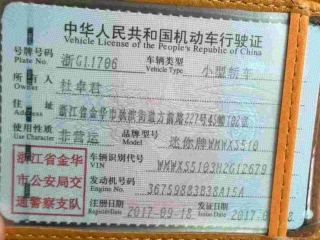 中华人民共和国机动车行驶证
Vehicle License of the People's Republic of China
号牌号码 浙G11706 车辆类型 小型轿车
Plate No. Vehicle Type
所有人 杜卓君
Owner
住址 浙江省金华市
Address
使用性质 非营运 品牌型号 迷你牌WMWXS510
Use Character Model
浙江省金华
市公安局交
通警察支队
车辆识别代号
VIN
发动机号码
Engine No.
注册日期 2017-09-18 发证日期 2017-0
Register Date Issue Date